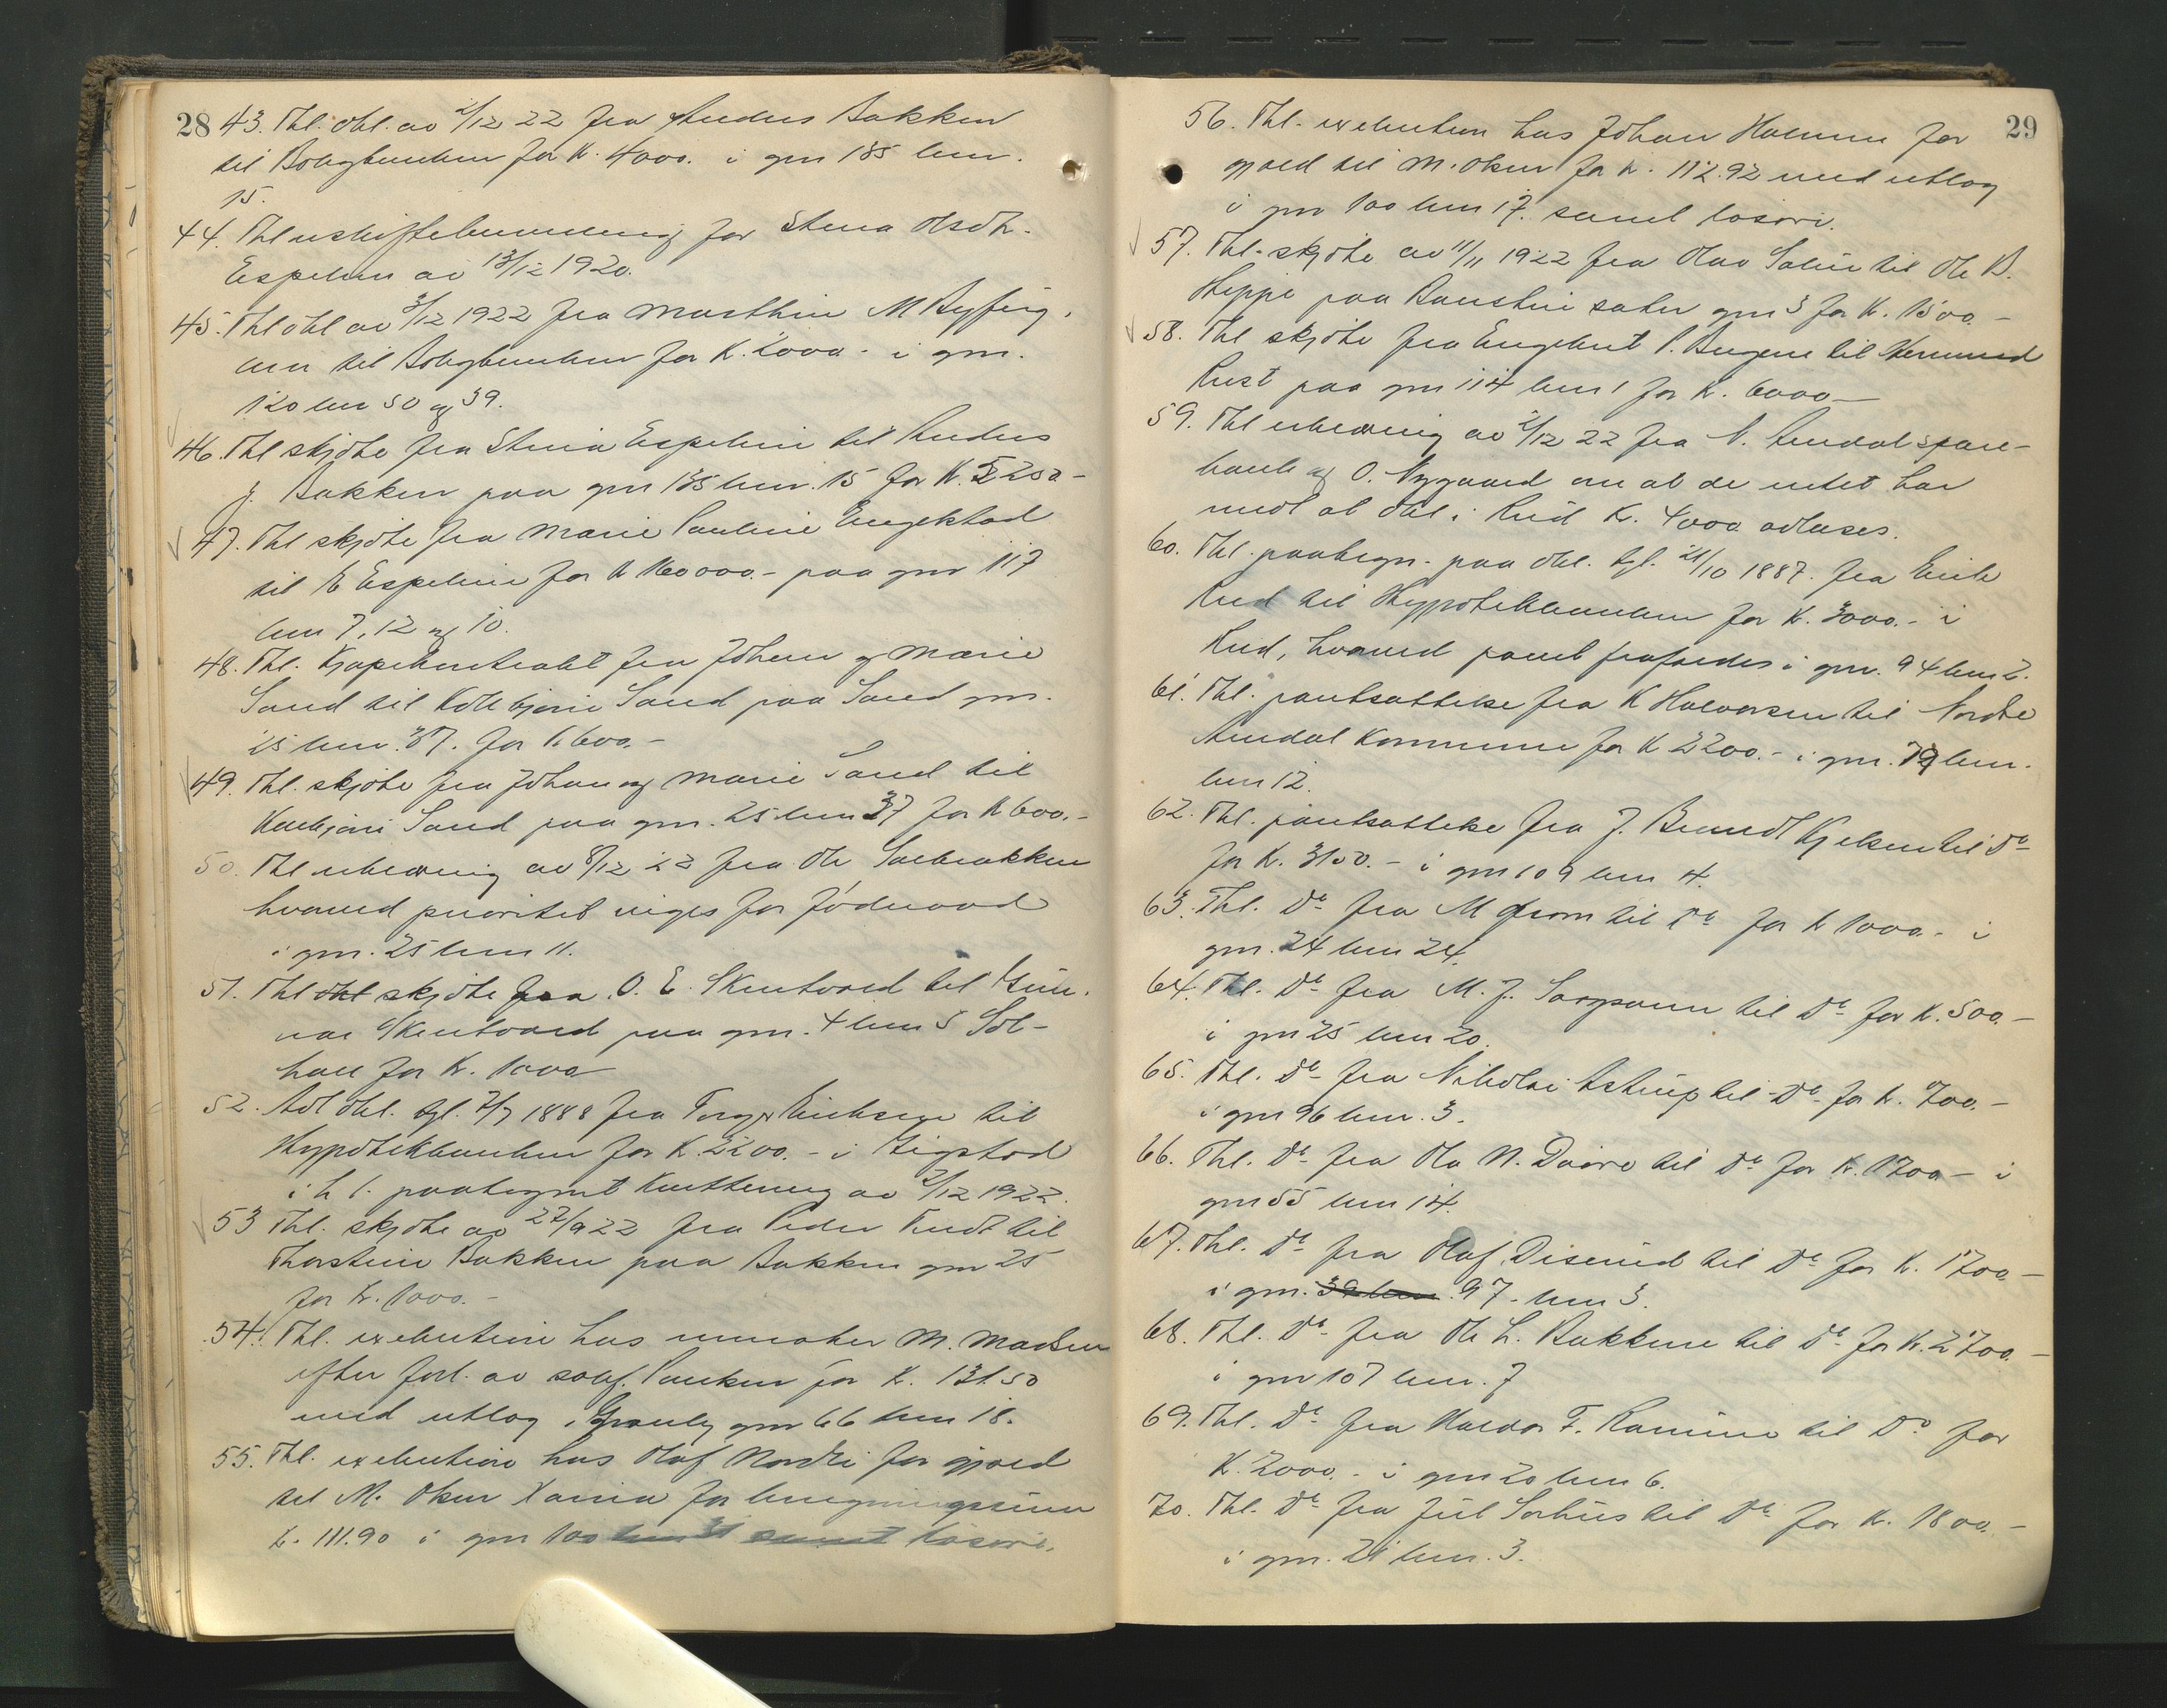 28 43. Thl. obl. av 2/12 22 fra Anders Bakken
til Boligbanken for K. 4000. i gnr 135 bnr.
15.
44. Thl uskiftebevilling for Stena Olsdtr.
Espelien av 13/12 1920.
45. Thl obl av 3/12 1922 fra Marthin M
til Boligbanken for K. 2000.- i gnr.
120 bnr 50 og 39.
46. Thl skjöte fra Stena Espelien til Anders
J. Bakken paa gnr 135 bnr. 15 for K. 5250-
47. Thl skjöte fra Marie Pauline Engelstad
til E Espelien for K 160000.- paa gnr 117
bnr 7, 12 og 10.
48. Thl. Kjøpekontrakt fra Johan og Marie
Sand til Kolbjörn Sand paa Sand gnr.
25 bnr. 37. for K 600.-
49. Thl. skjöte fra Johan og Marie Sand til
Kolbjörn Sand paa gnr. 25 bnr 37 for K 600.-
50. Thl erklæring av 8/12 22 fra Ole
hvorved prioritet viges for
i gnr. 25 bnr 11.
51. Thl obl skjöte fra O. E. Skintvoed til Gun-
nar Skintvoed paa gnr. 4 bnr 5 Sol-
hau for K. 1000
52. Avl obl. tgl. 7/7 1888 fra Torger Eriksen til
Hypotekbanken for K. 2200.- i
i h. t. paategnet kvittering av 2/12 1922.
53 Thl. skjöte av 22/9 22 fra Peder til
Thorstein Bakken paa Bakken gnr 25
for K. 1000.-
54. Thl. exekution hos M. Madsen
efter forl. av sakf. Paulsen for K. 131.50
med utlæg i gnr 66 bnr 18.
55. Thl. exekution hos Olaf Nordli for gjæld
til M. Olsen for
K. 111.90 i gnr 100 samt løsøre.
56. Thl. exekution hos Johan for 29
gjæld til M. Olsen for K. 112.92 med utlæg
i gnr 100 bnr 17. samt løsøre.
57. Thl. skjöte av 11/11 1922 fra Olav til Ole B.
paa gnr 3 for K. 1500.-
58. Thl skjöte fra Engebret P. til
Rust paa gnr 114 bnr 1 for K. 6000-
59. Thl erklæring av 2/12 22 fra N. Aurdal spare-
bank og O. Nygaard om at de intet har
mot at obl. i Rud K. 4000 avlæses.
60. Thl. paategn. paa obl. tgl. 21/10 1887. fra Erik
Rud til Hypotekbanken for K. 3000.- i
Rud, hvorved pant frafaldes i gnr. 94 bnr 2.
61. Thl. pantsættelse fra K Halvorsen til Nordre
Aurdal Kommune for K 2200.- i gnr. 79 bnr.
bnr 12.
62. Thl. pantsættelse fra J. til Do
for K. 3100.- i gnr 109 bnr 4.
63. Thl. Do fra M til Do for K 1000.- i
gnr. 24 bnr 24.
64. Thl. Do fra M. J. til Do for K. 500.-
i gnr 25 bnr 20.
65. Thl. Do fra Nikolai Astrup til Do for K. 700.-
i gnr 96 bnr. 3.
66. Thl. Do fra Ola N. til Do for K. 1700- i
gnr 55 bnr 14.
67. Thl. Do fra Olaf Diserud til Do for K. 1700.-
i gnr. 97. bnr 3.
68. Thl. Do fra Ole L. Bakkene til Do for K. 2700.-
i gnr 107 bnr. 7
69. Thl. Do fra Haldor T. til Do for
K. 2000.- i gnr 20 bnr 6.
70. Thl. Do fra Jul Sørhus til Do for K. 1800.-
i gnr. 21 bnr. 3.